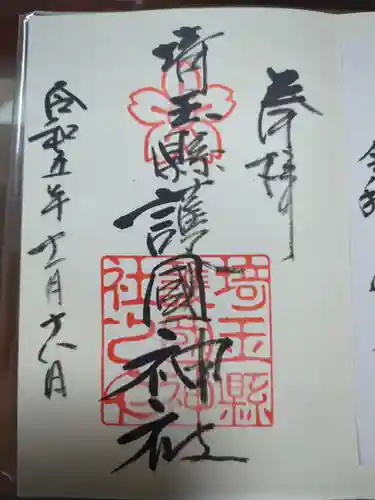 奉拝
埼玉縣護國神社
令和五年十一月十八日
埼玉縣
護國神
社之印